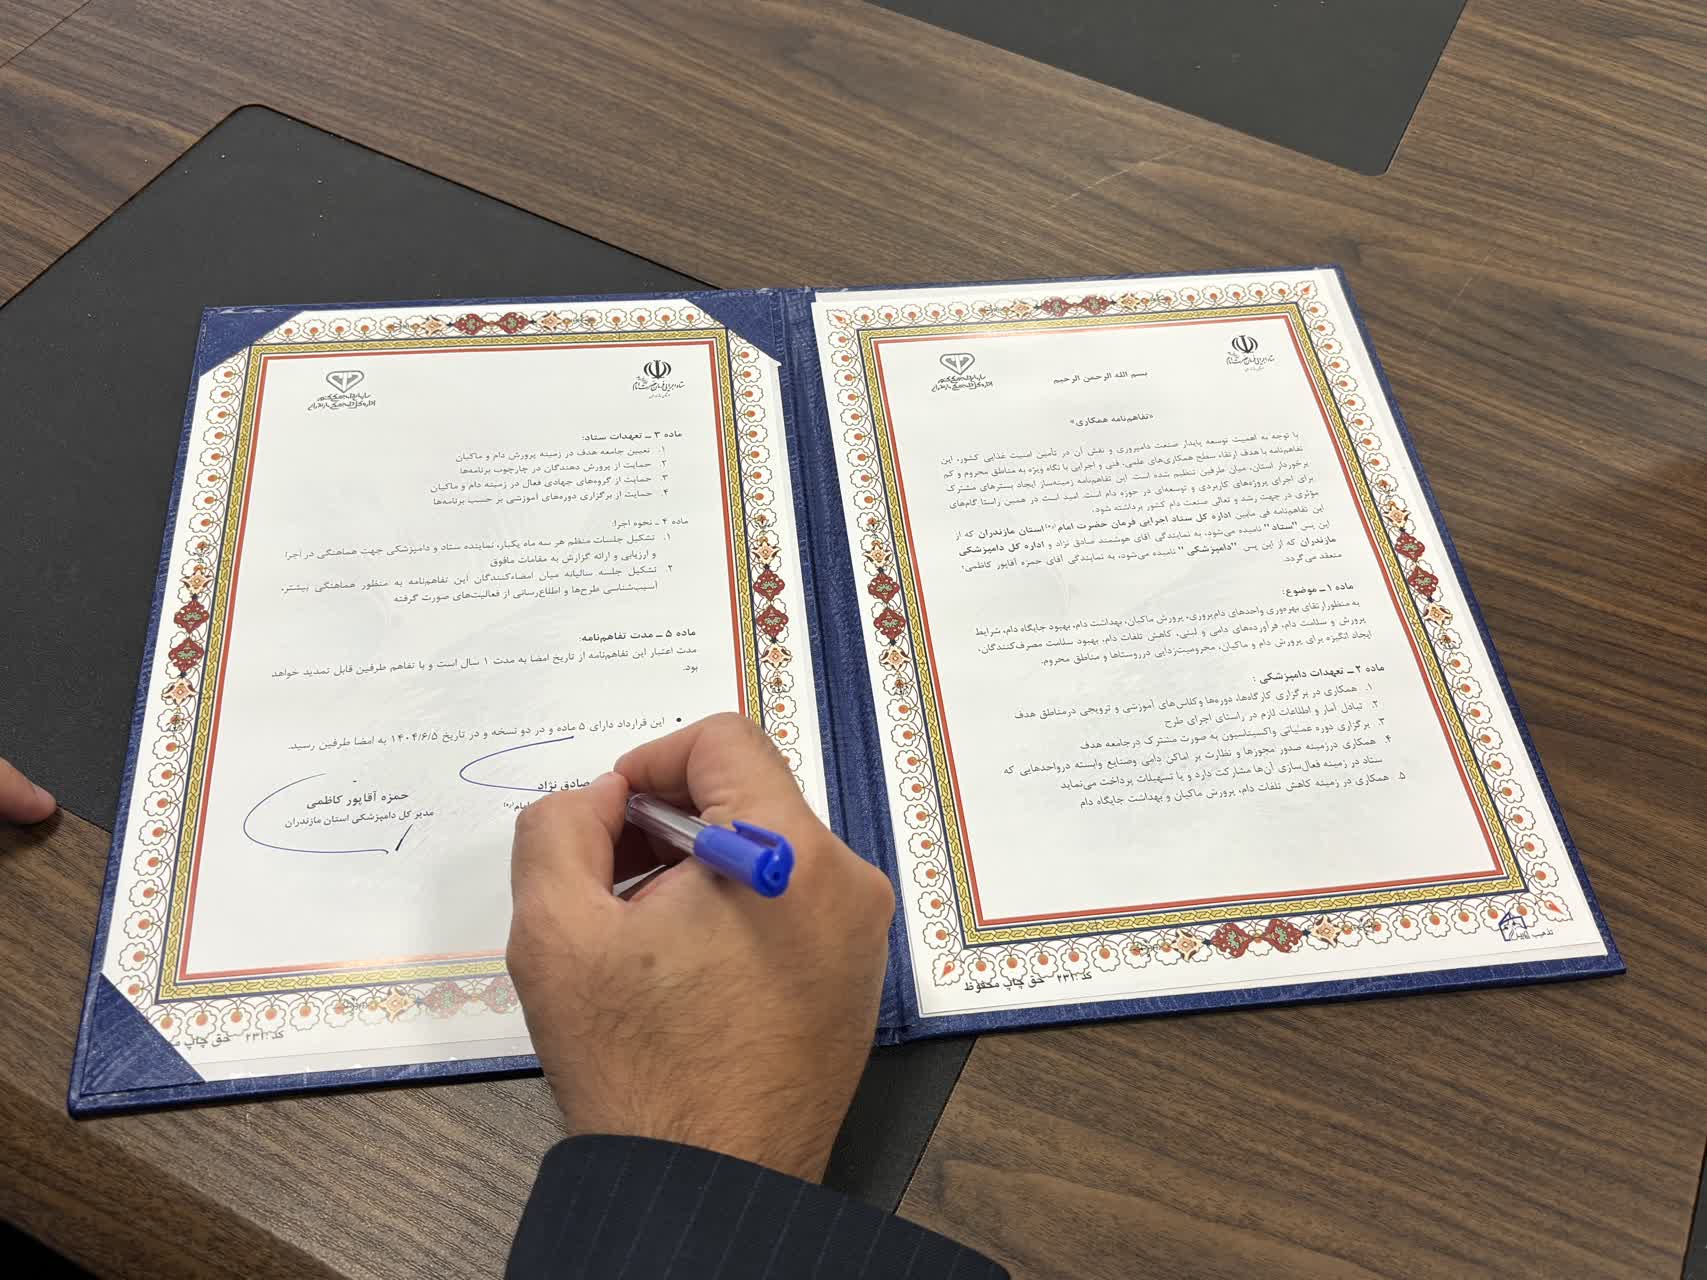 بسم الله الرحمن الرحیم
«تفاهم‌نامه همکاری»
با توجه به اهمیت توسعه پایدار صنعت دامپروری و نقش آن در تأمین امنیت غذایی کشور، این
تفاهم‌نامه با هدف ارتقاء سطح همکاری‌های علمی، فنی و اجرایی با نگاه ویژه به مناطق محروم و کم
برخوردار استان، میان طرفین تنظیم شده است. این تفاهم‌نامه زمینه‌ساز ایجاد بسترهای مشترک
برای اجرای پروژه‌های کاربردی و توسعه‌ای در حوزه دام است. امید است در همین راستا گام‌های
مؤثری در جهت رشد و تعالی صنعت دام کشور برداشته شود.
این تفاهم‌نامه فی مابین اداره کل ستاد اجرایی فرمان حضرت امام(ره) استان مازندران که از
این پس "ستاد" نامیده می‌شود، به نمایندگی آقای هوشمند صادق نژاد و اداره کل دامپزشکی
مازندران که از این پس "دامپزشکی" نامیده می‌شود، به نمایندگی آقای حمزه آقاپور کاظمی؛
منعقد می‌گردد.
ماده ۱ ـ موضوع:
به منظور ارتقای بهره‌وری واحدهای دام‌پروری، پرورش ماکیان، بهداشت دام، بهبود جایگاه دام، شرایط
پرورش و سلامت دام، فرآورده‌های دامی و لبنی، کاهش تلفات دام، بهبود سلامت مصرف‌کنندگان،
ایجاد انگیزه برای پرورش دام و ماکیان، محرومیت‌زدایی درروستاها و مناطق محروم.
ماده ۲ ـ تعهدات دامپزشکی :
۱. همکاری در برگزاری کارگاه‌ها، دوره‌ها وکلاس‌های آموزشی و ترویجی درمناطق هدف
۲. تبادل آمار و اطلاعات لازم در راستای اجرای طرح
۳. برگزاری دوره عملیاتی واکسیناسیون به صورت مشترک درجامعه هدف
۴. همکاری درزمینه صدور مجوزها و نظارت بر اماکن دامی وصنایع وابسته درواحدهایی که
ستاد در زمینه فعال‌سازی آن‌ها مشارکت دارد و یا تسهیلات پرداخت می‌نماید
۵. همکاری در زمینه کاهش تلفات دام، پرورش ماکیان و بهداشت جایگاه دام
کد: ۲۳۱ حق چاپ محفوظ
ماده ۳ ـ تعهدات ستاد:
۱. تعیین جامعه هدف در زمینه پرورش دام و ماکیان
۲. حمایت از پرورش دهندگان در چارچوب برنامه‌ها
۳. حمایت از گروه‌های جهادی فعال در زمینه دام و ماکیان
۴. حمایت از برگزاری دوره‌های آموزشی بر حسب برنامه‌ها
ماده ۴ ـ نحوه اجرا:
۱. تشکیل جلسات منظم هر سه ماه یکبار، نماینده ستاد و دامپزشکی جهت هماهنگی در اجرا
و ارزیابی و ارائه گزارش به مقامات مافوق
۲. تشکیل جلسه سالیانه میان امضاءکنندگان این تفاهم‌نامه به منظور هماهنگی بیشتر،
آسیب‌شناسی طرح‌ها و اطلاع‌رسانی از فعالیت‌های صورت گرفته
ماده ۵ ـ مدت تفاهم‌نامه:
مدت اعتبار این تفاهم‌نامه از تاریخ امضا به مدت ۱ سال است و با تفاهم طرفین قابل تمدید خواهد
بود.
• این قرارداد دارای ۵ ماده و در دو نسخه و در تاریخ ۱۴۰۴/۶/۵ به امضا طرفین رسید.
صادق نژاد
امام(ره)
حمزه آقاپور کاظمی
مدیر کل دامپزشکی استان مازندران
کد: ۲۳۱ حق چاپ